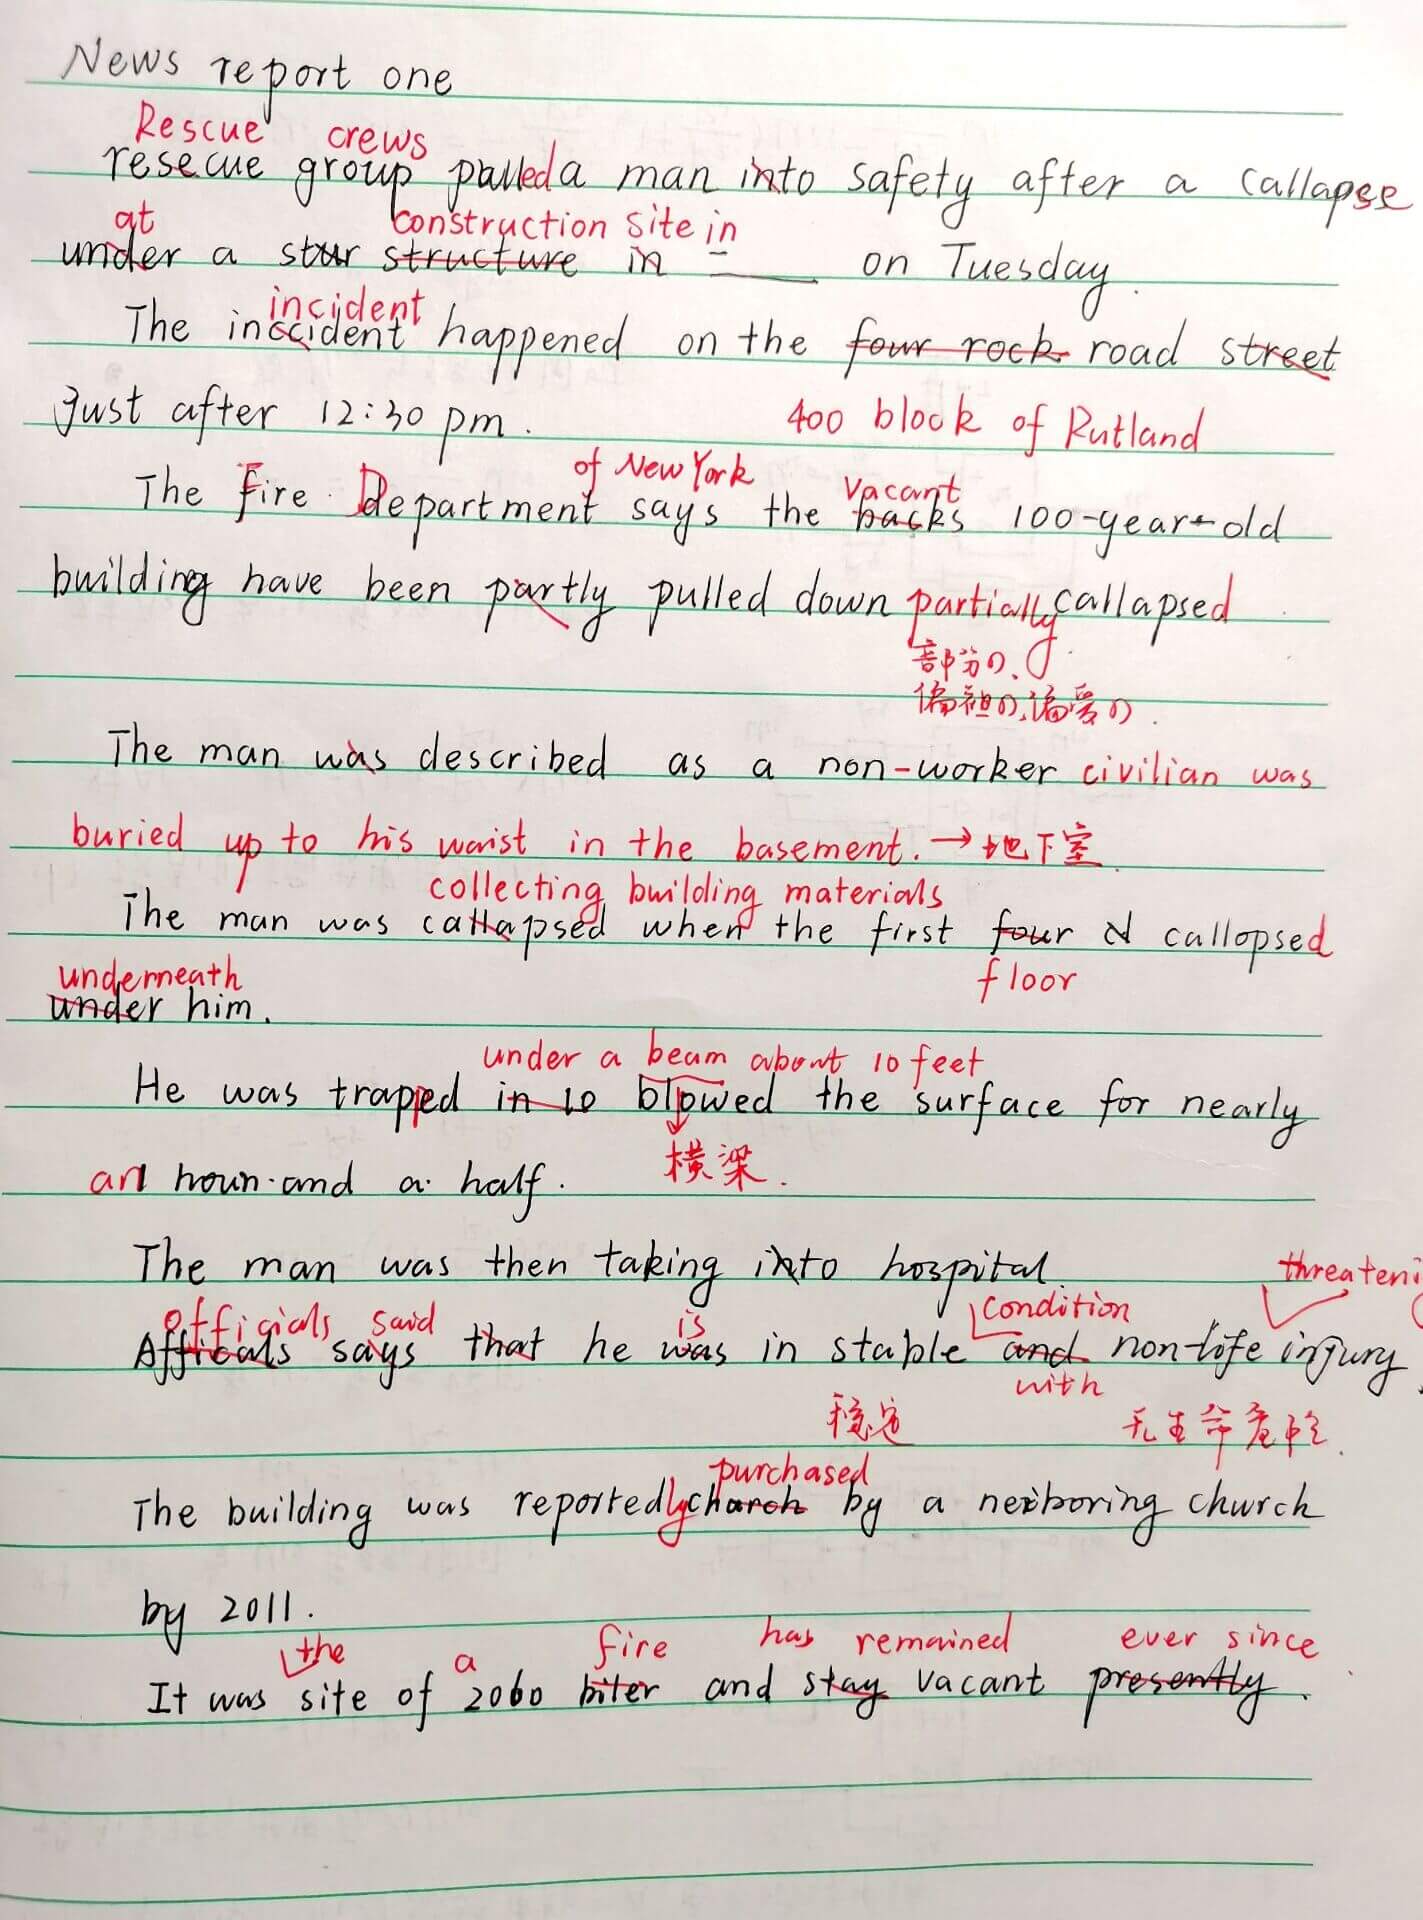 News report one
Rescue crews
resecue group pulled a man into safety after a callapse
at construction site in
under a star structure in on Tuesday.
incident
The inccident happened on the four rock road street
just after 12:30 pm.
400 block of Rutland
of New York vacant
The Fire Department says the backs 100-year-old
building have been partly pulled down partially callapsed
部分の、
偏袒の,偏爱の.
The man was described as a non-worker civilian was
buried up to his waist in the basement. → 地下室
collecting building materials
The man was callapsed when the first four callopsed
floor
underneath
under him.
under a beam about 10 feet
He was trapped in 10 blowed the surface for nearly
横梁.
an houn and a half.
The man was then taking into hospital.
threateni
officials said is condition
Afficals says that he was in stable and non-life injury.
with
稳定 无生命危险.
purchased
The building was reportedly charch by a neiboring church
by 2011.
the a fire has remained ever since
It was site of 2060 biter and stay vacant presently.